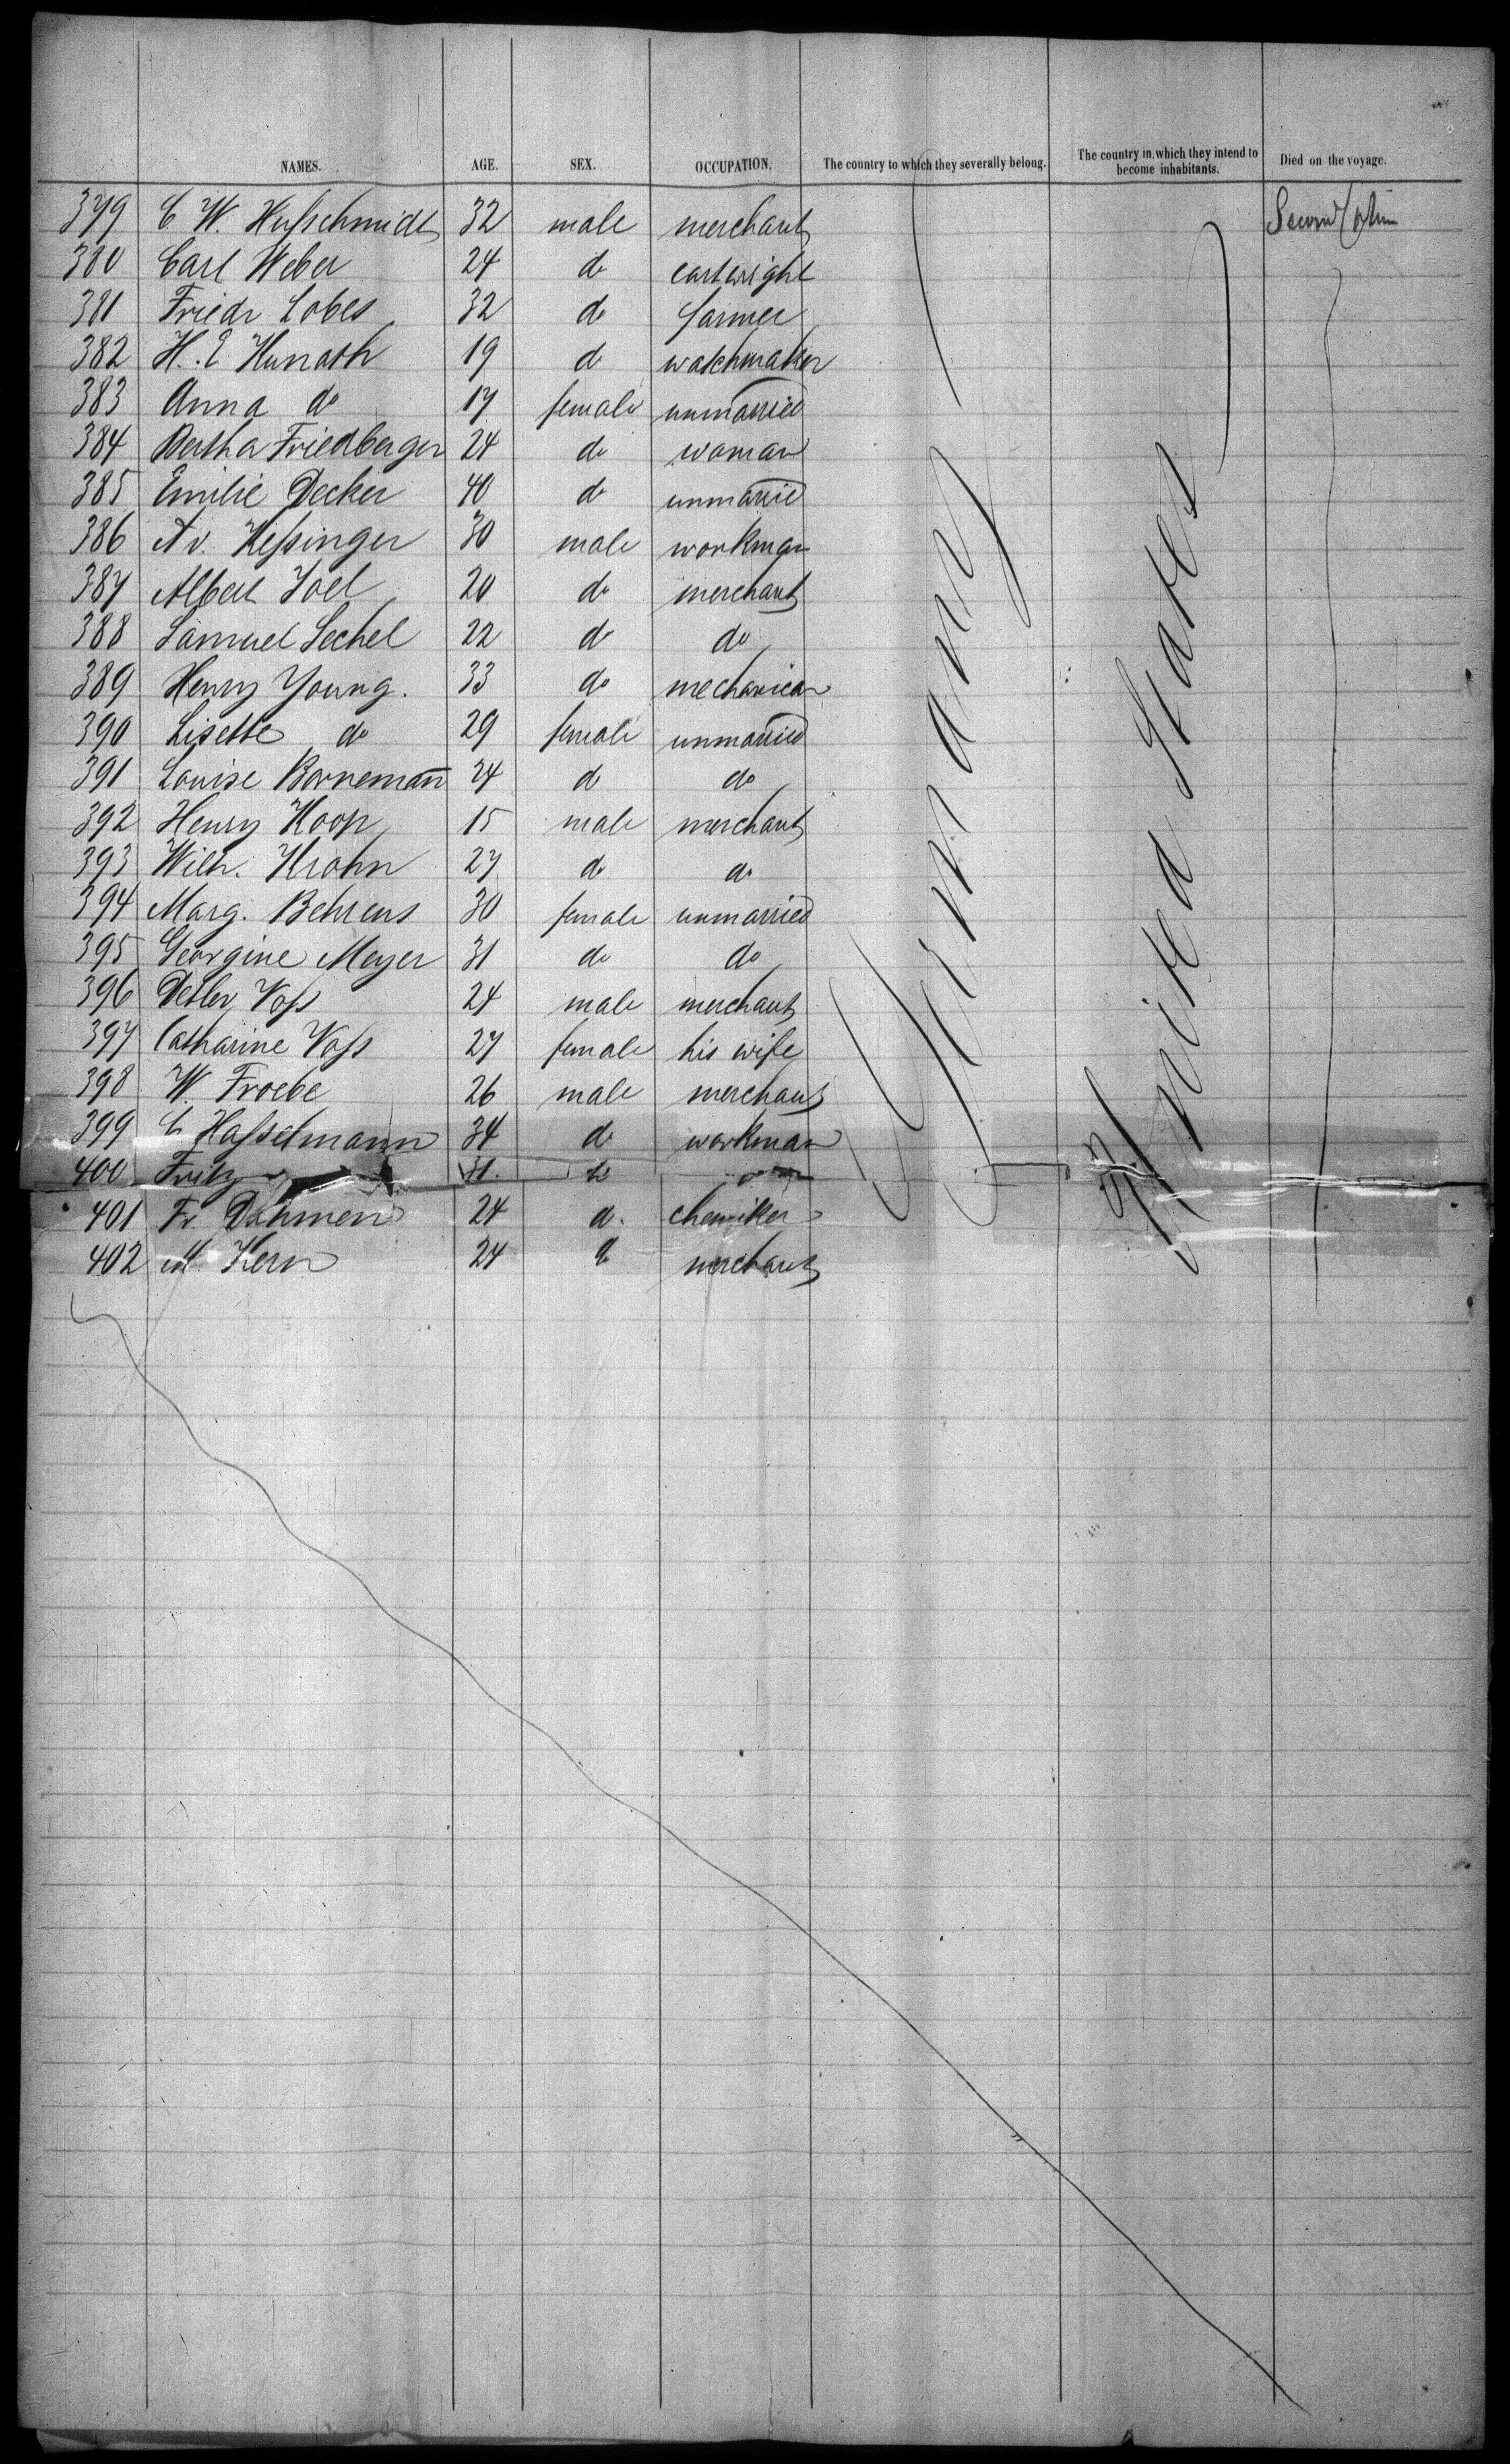 NAMES. AGE. SEX. OCCUPATION. The country to which they severally belong. The country in which they intend to become inhabitants. Died on the voyage.
379 C. W. Hufschmidt 32 male merchant Second
380 Carl Weber 24 do cartwright
381 Friedr Lobes 32 do farmer
382 H. E Kunath 19 do watchmaker
383 Anna do 17 female unmarried
384 Bertha Friedberger 24 do woman
385 Emilie Decker 40 do unmarried
386 A v. Kessinger 30 male workman
387 Albert Joel 20 do merchant
388 Samuel Sechel 22 do do
389 Henry Young. 33 do mechanican
390 Lisette do 29 female unmarried
391 Louise Bornemann 24 do do
392 Henry Koop 15 male merchant
393 Wilh. Krohn 27 do do
394 Marg. Behrens 30 female unmarried
395 Georgine Meyer 31 do do
396 Detlev Voss 24 male merchant
397 Catharine Voss 27 female his wife
398 W. Froebe 26 male merchant
399 C Hasselmann 34 do workman
400 Fritz 31. do
401 Fr. Dahmen 24 do. chemiker
402 M. Kern 24 do merchant
Germany
United States